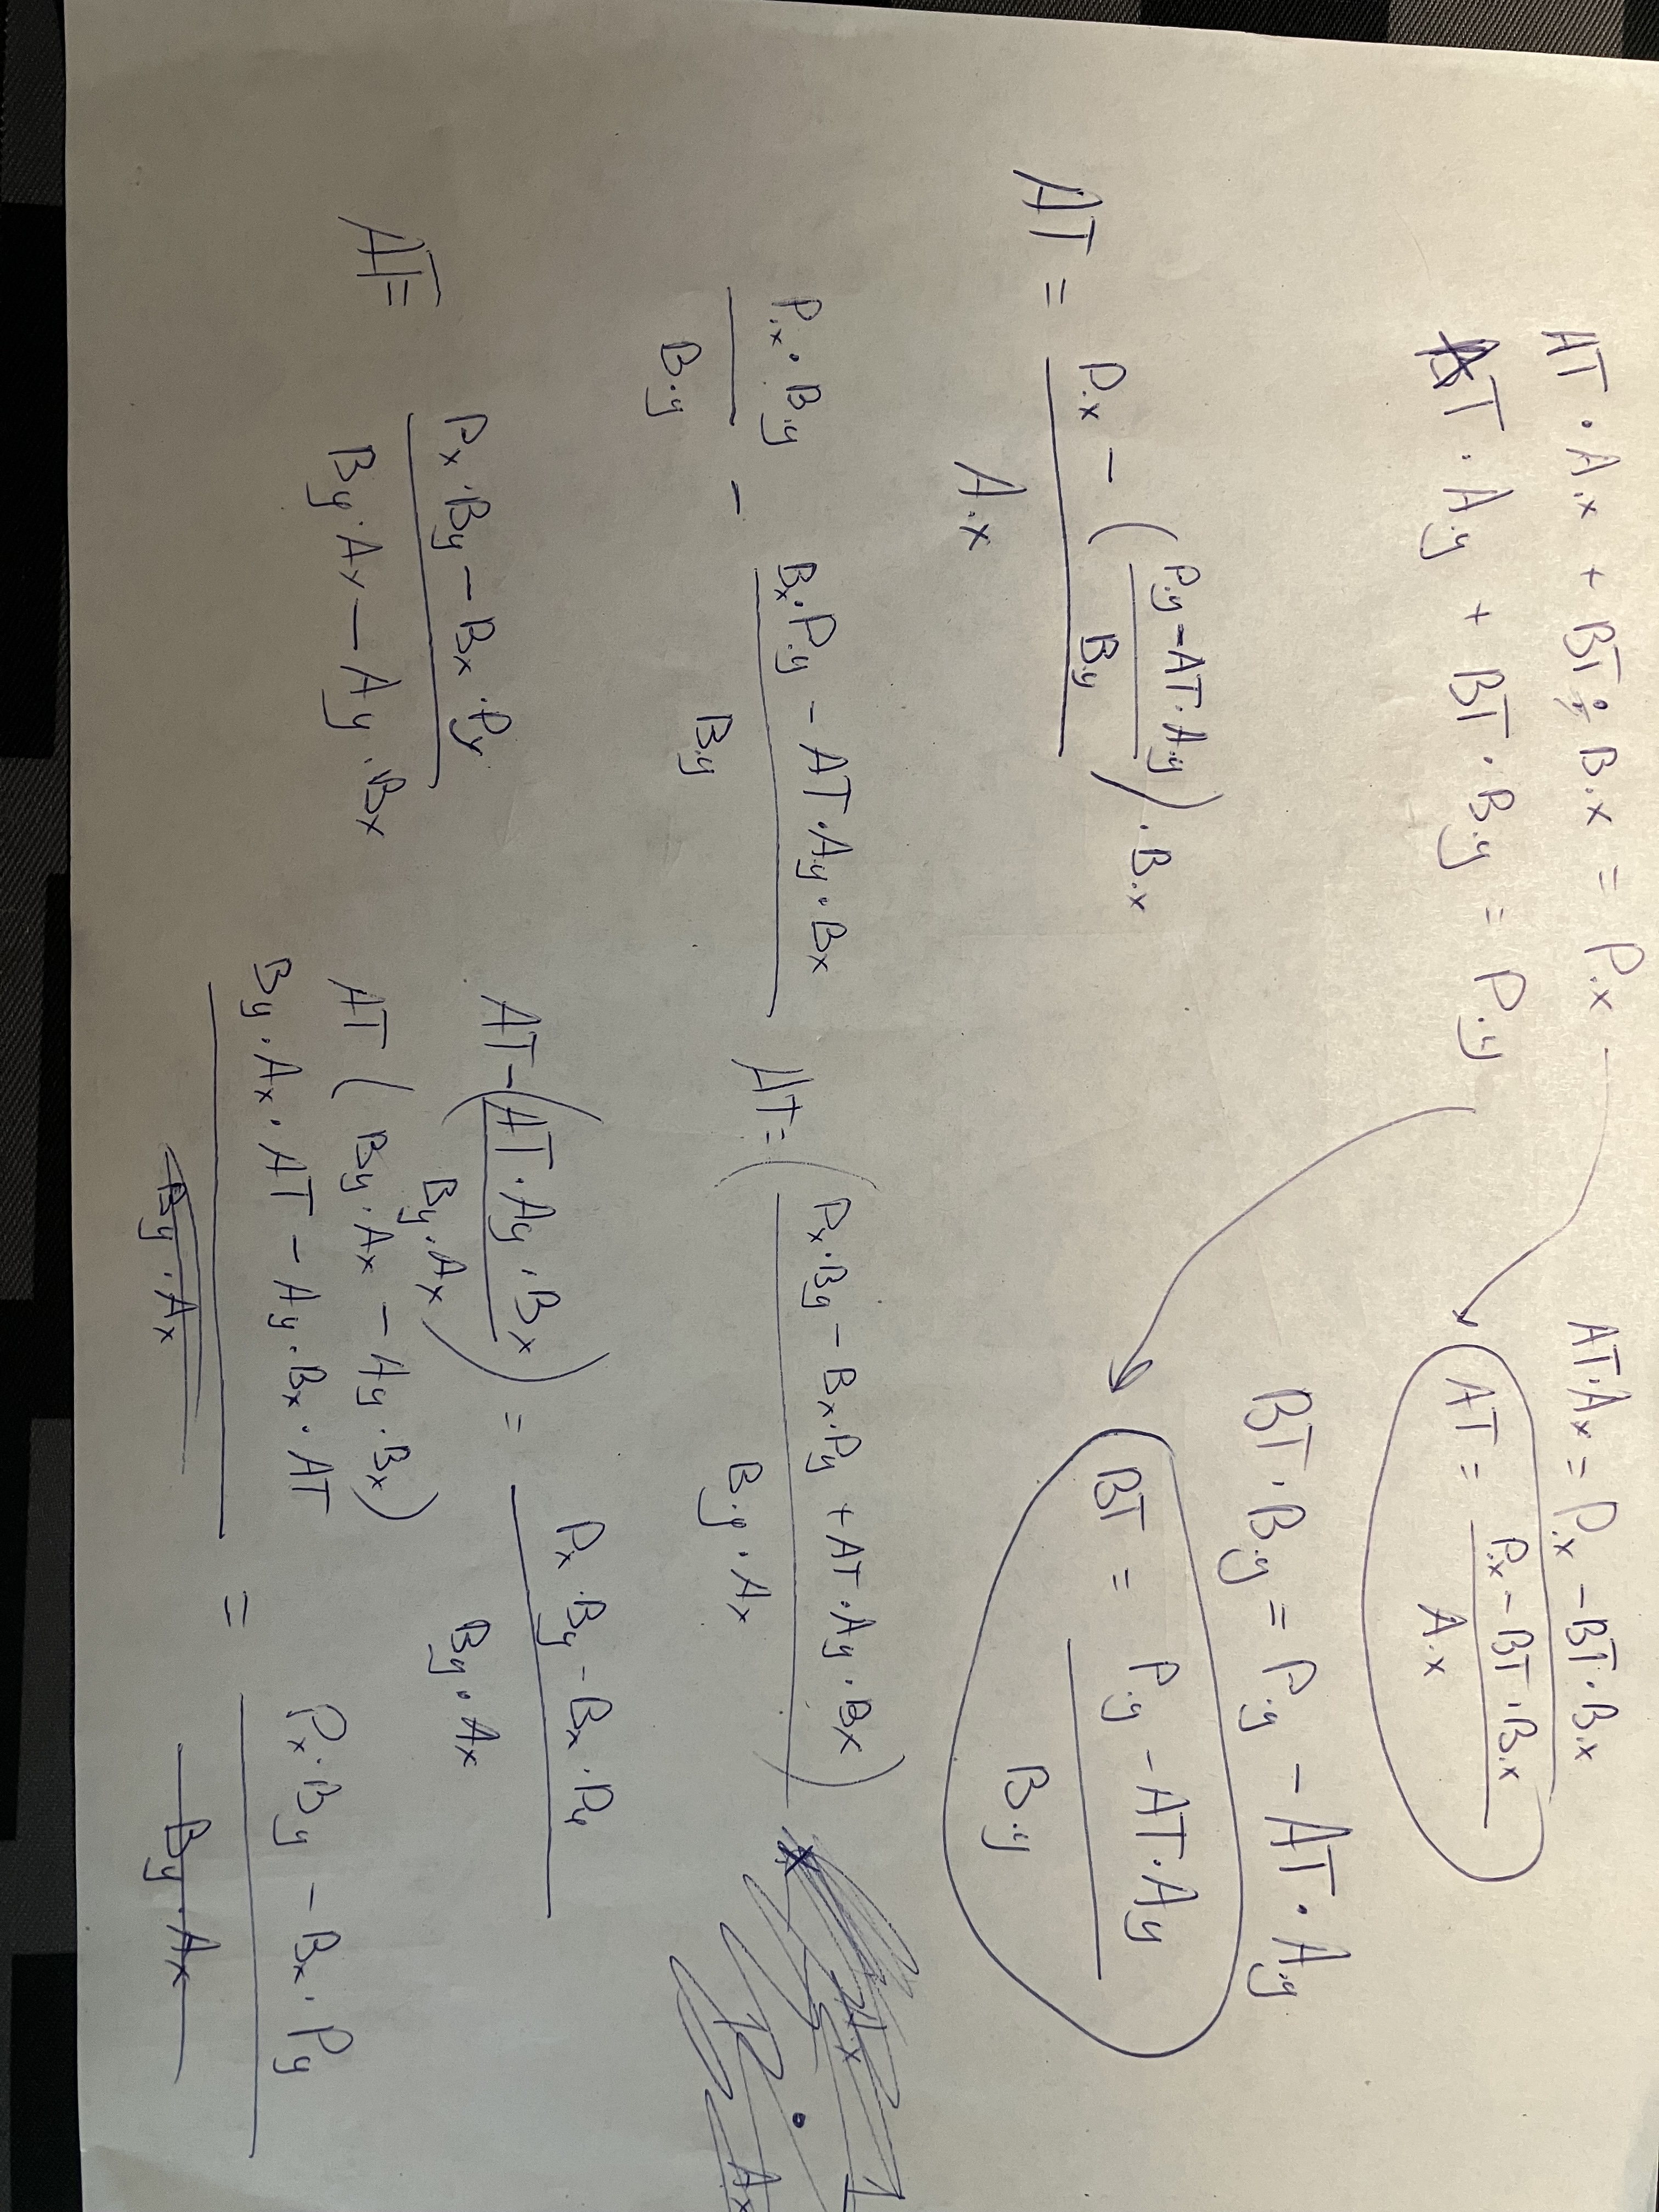 AT · A.x + BT · B.x = P.x
AT · A.y + BT · B.y = P.y
AT·A.x = P.x - BT·B.x
AT = (P.x - BT·B.x) / A.x
BT · B.y = P.y - AT · A.y
BT = (P.y - AT·A.y) / B.y
AT = (P.x - ((P.y - AT·A.y) / B.y) · B.x) / A.x
(P.x · B.y) / B.y - (Bx·P.y - AT·A.y·Bx) / B.y
AT = ((Px·By - Bx·Py + AT·Ay·Bx) / (B.y·Ax))
AT - ((AT·Ay·Bx) / (By·Ax)) = (Px·By - Bx·Py) / (By·Ax)
AT (By·Ax - Ay·Bx)
(By·Ax·AT - Ay·Bx·AT) / (By·Ax) = (Px·By - Bx·Py) / (By·Ax)
AT = (Px·By - Bx·Py) / (By·Ax - Ay·Bx)